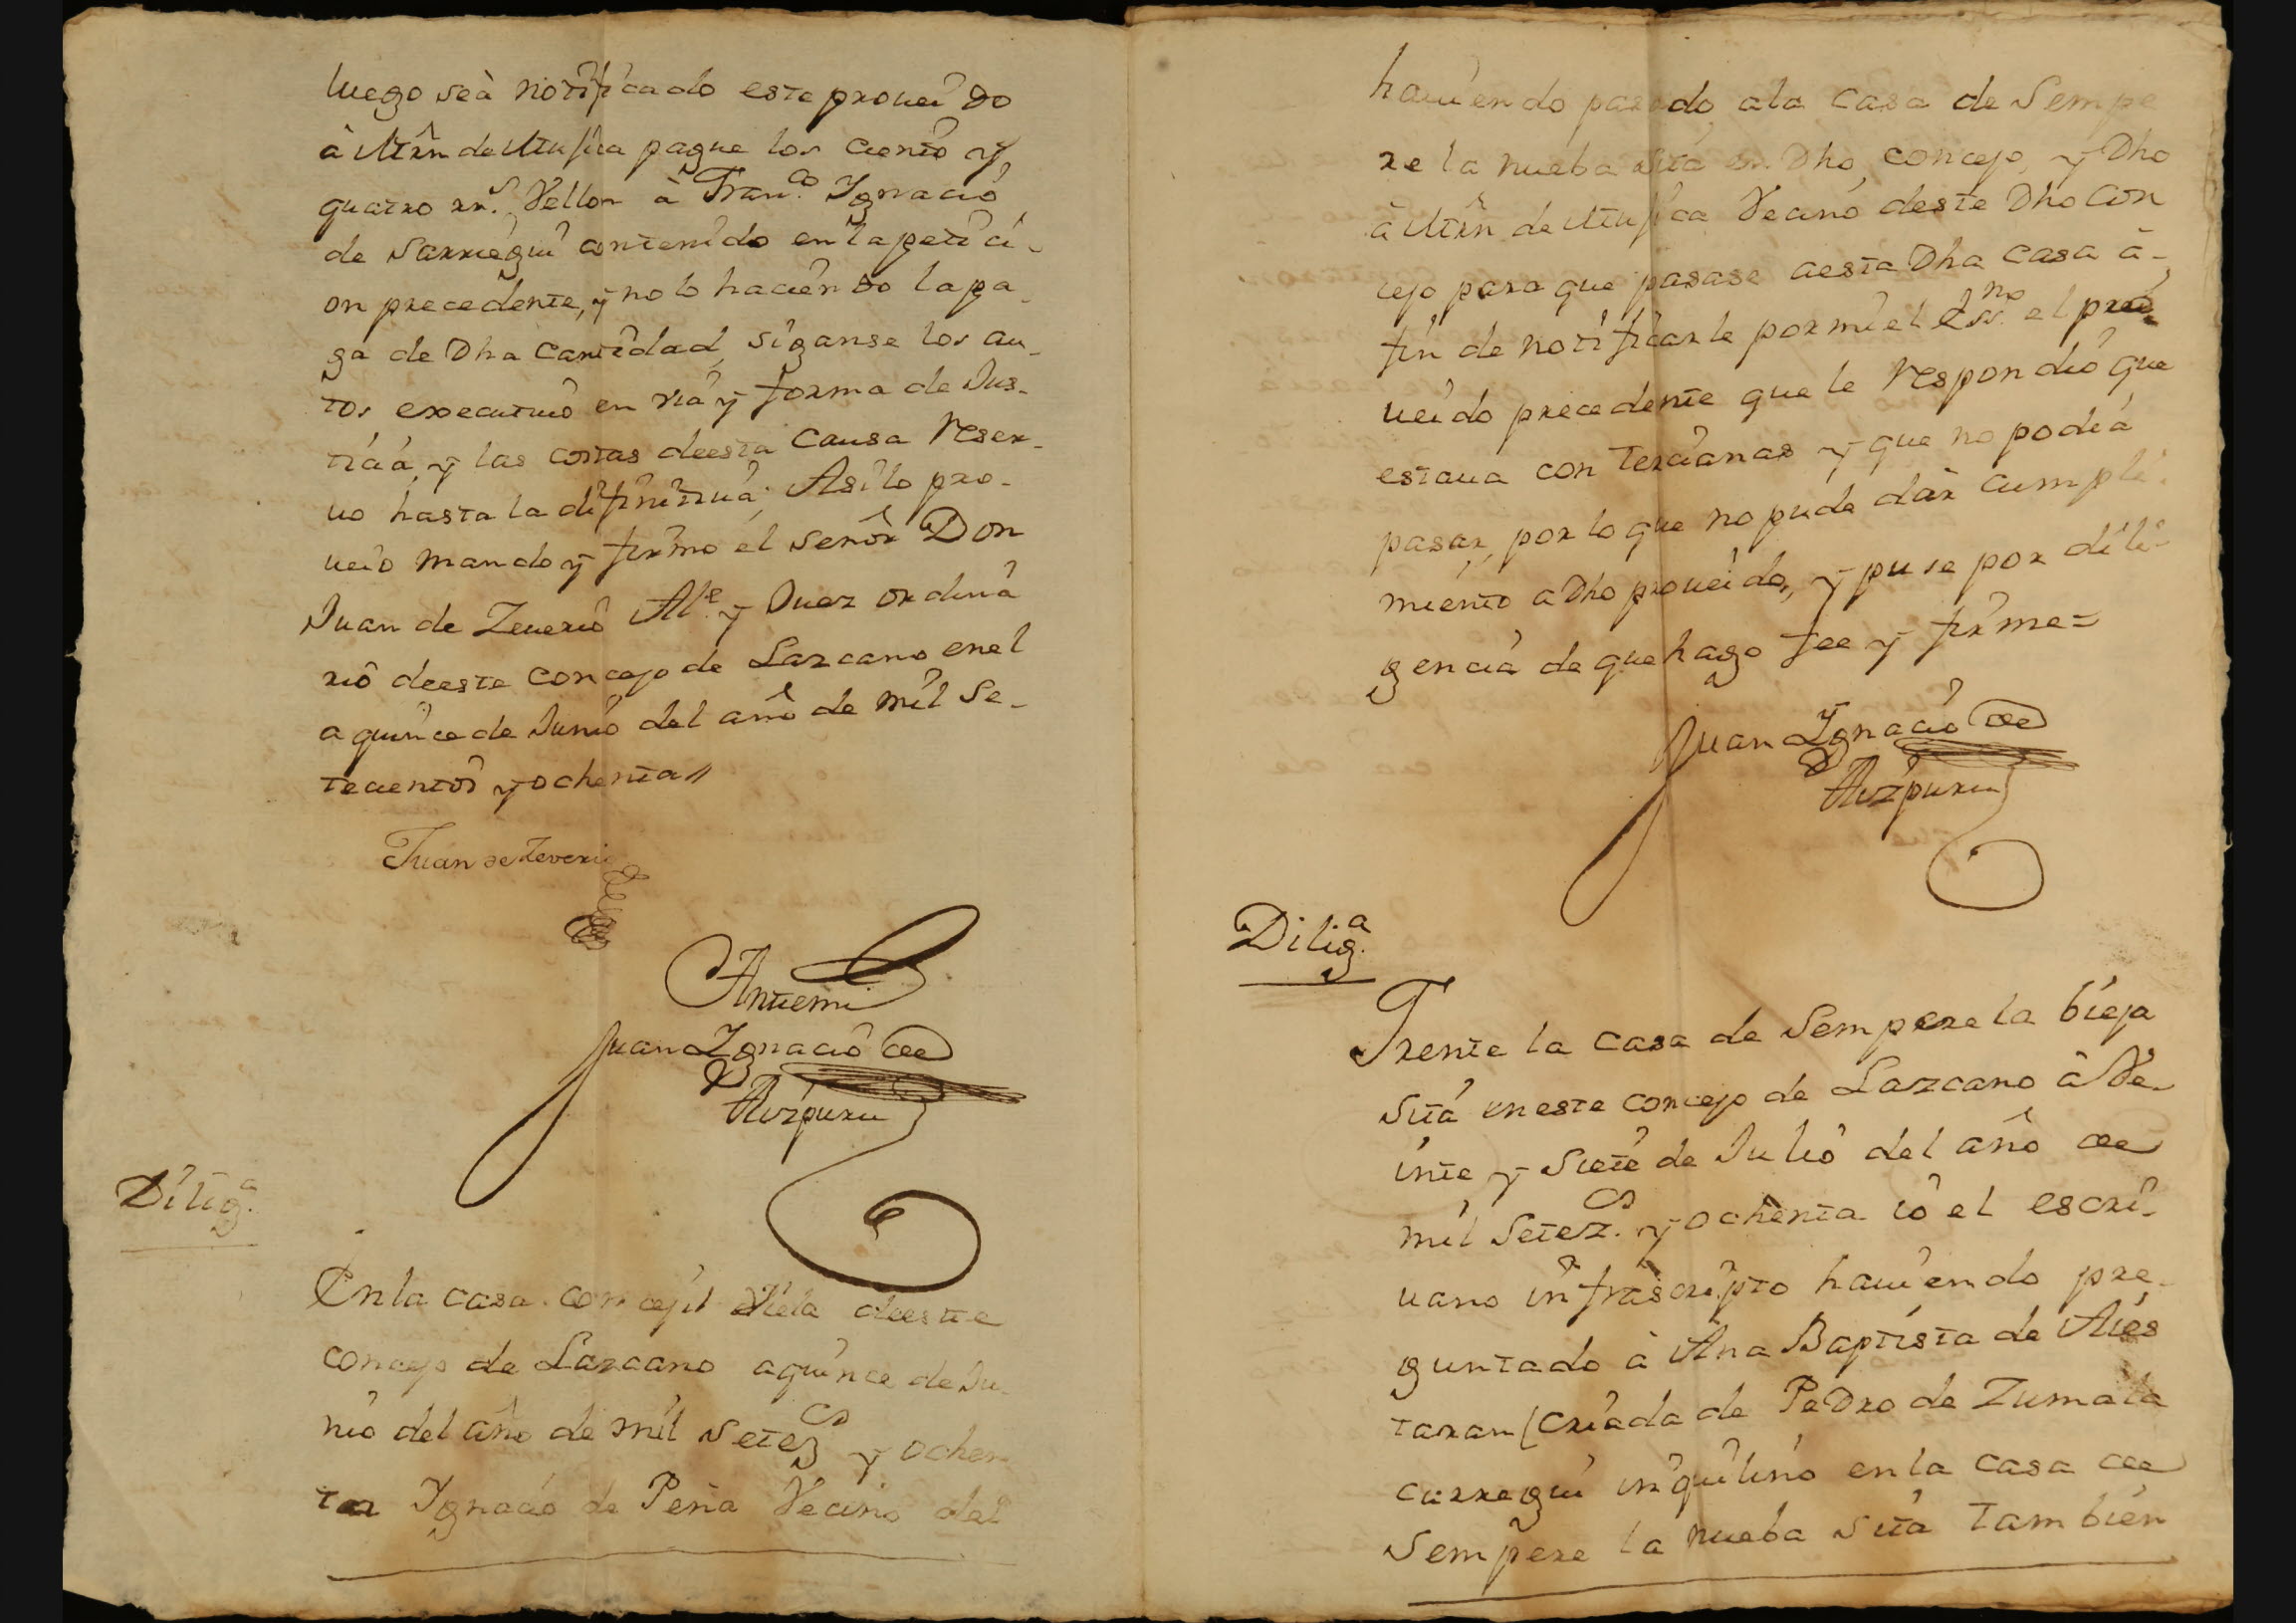 luego seà notificado este proueido
à Mrn de Mujica pague los ciento y
quatro rr.s Vellon à Fran.co Ygnacio
de Sarriegui contenido en la petici-
on precedente, y no lo haciendo la pa-
ga de Dha cantidad, siganse los au-
tos executiuo en via y forma de Jus-
ticia, y las costas deesta causa reser-
uo hasta la difinitiua; Asilo pro-
ueió mando y firmo él señor Don
Juan de Zeuerio Al.e y Juez ordina
rio deeste concejo de Lazcano enel
a quince de Junio del año de mil Se-
tecientos y ochenta//
Juan de Zeverio
Antemi
Juan Ygnacio de
Aizpuru
Dilig.a
En la casa concejil deeste
concejo de Lazcano a quince de Ju-
nio del año de mil setez.s y ochen
ta Ygnacio de Peña Vecino del
hauiendo pasado ala casa de Sempe
re la nueba sita en Dho concejo, y Dho
à Mrn de Mujica Vecino deste Dho con
cejo para que pasase aesta Dha casa à
fin de notificarle por mi el Ess.no el pro-
ueido precedente que le respondió que
estaua con tercianas y que no podia
pasar, por lo que no pude dàr cumpli-
miento a Dho proueido, y puse por dili-
gencia de que hago fee y firme=
Juan Ygnacio de
Aizpuru
Dilig.a
Frente la casa de Sempere la bieja
Sita en este concejo de Lazcano à Ve-
inte y Siete de Julio del año de
mil Setez.s y ochenta io el escri-
uano infrascripto hauiendo pre-
guntado à Ana Baptista de Aies
taran (criada de Pedro de Zumala
carregui inquilino en la casa de
Sempere la nueba sita tambien